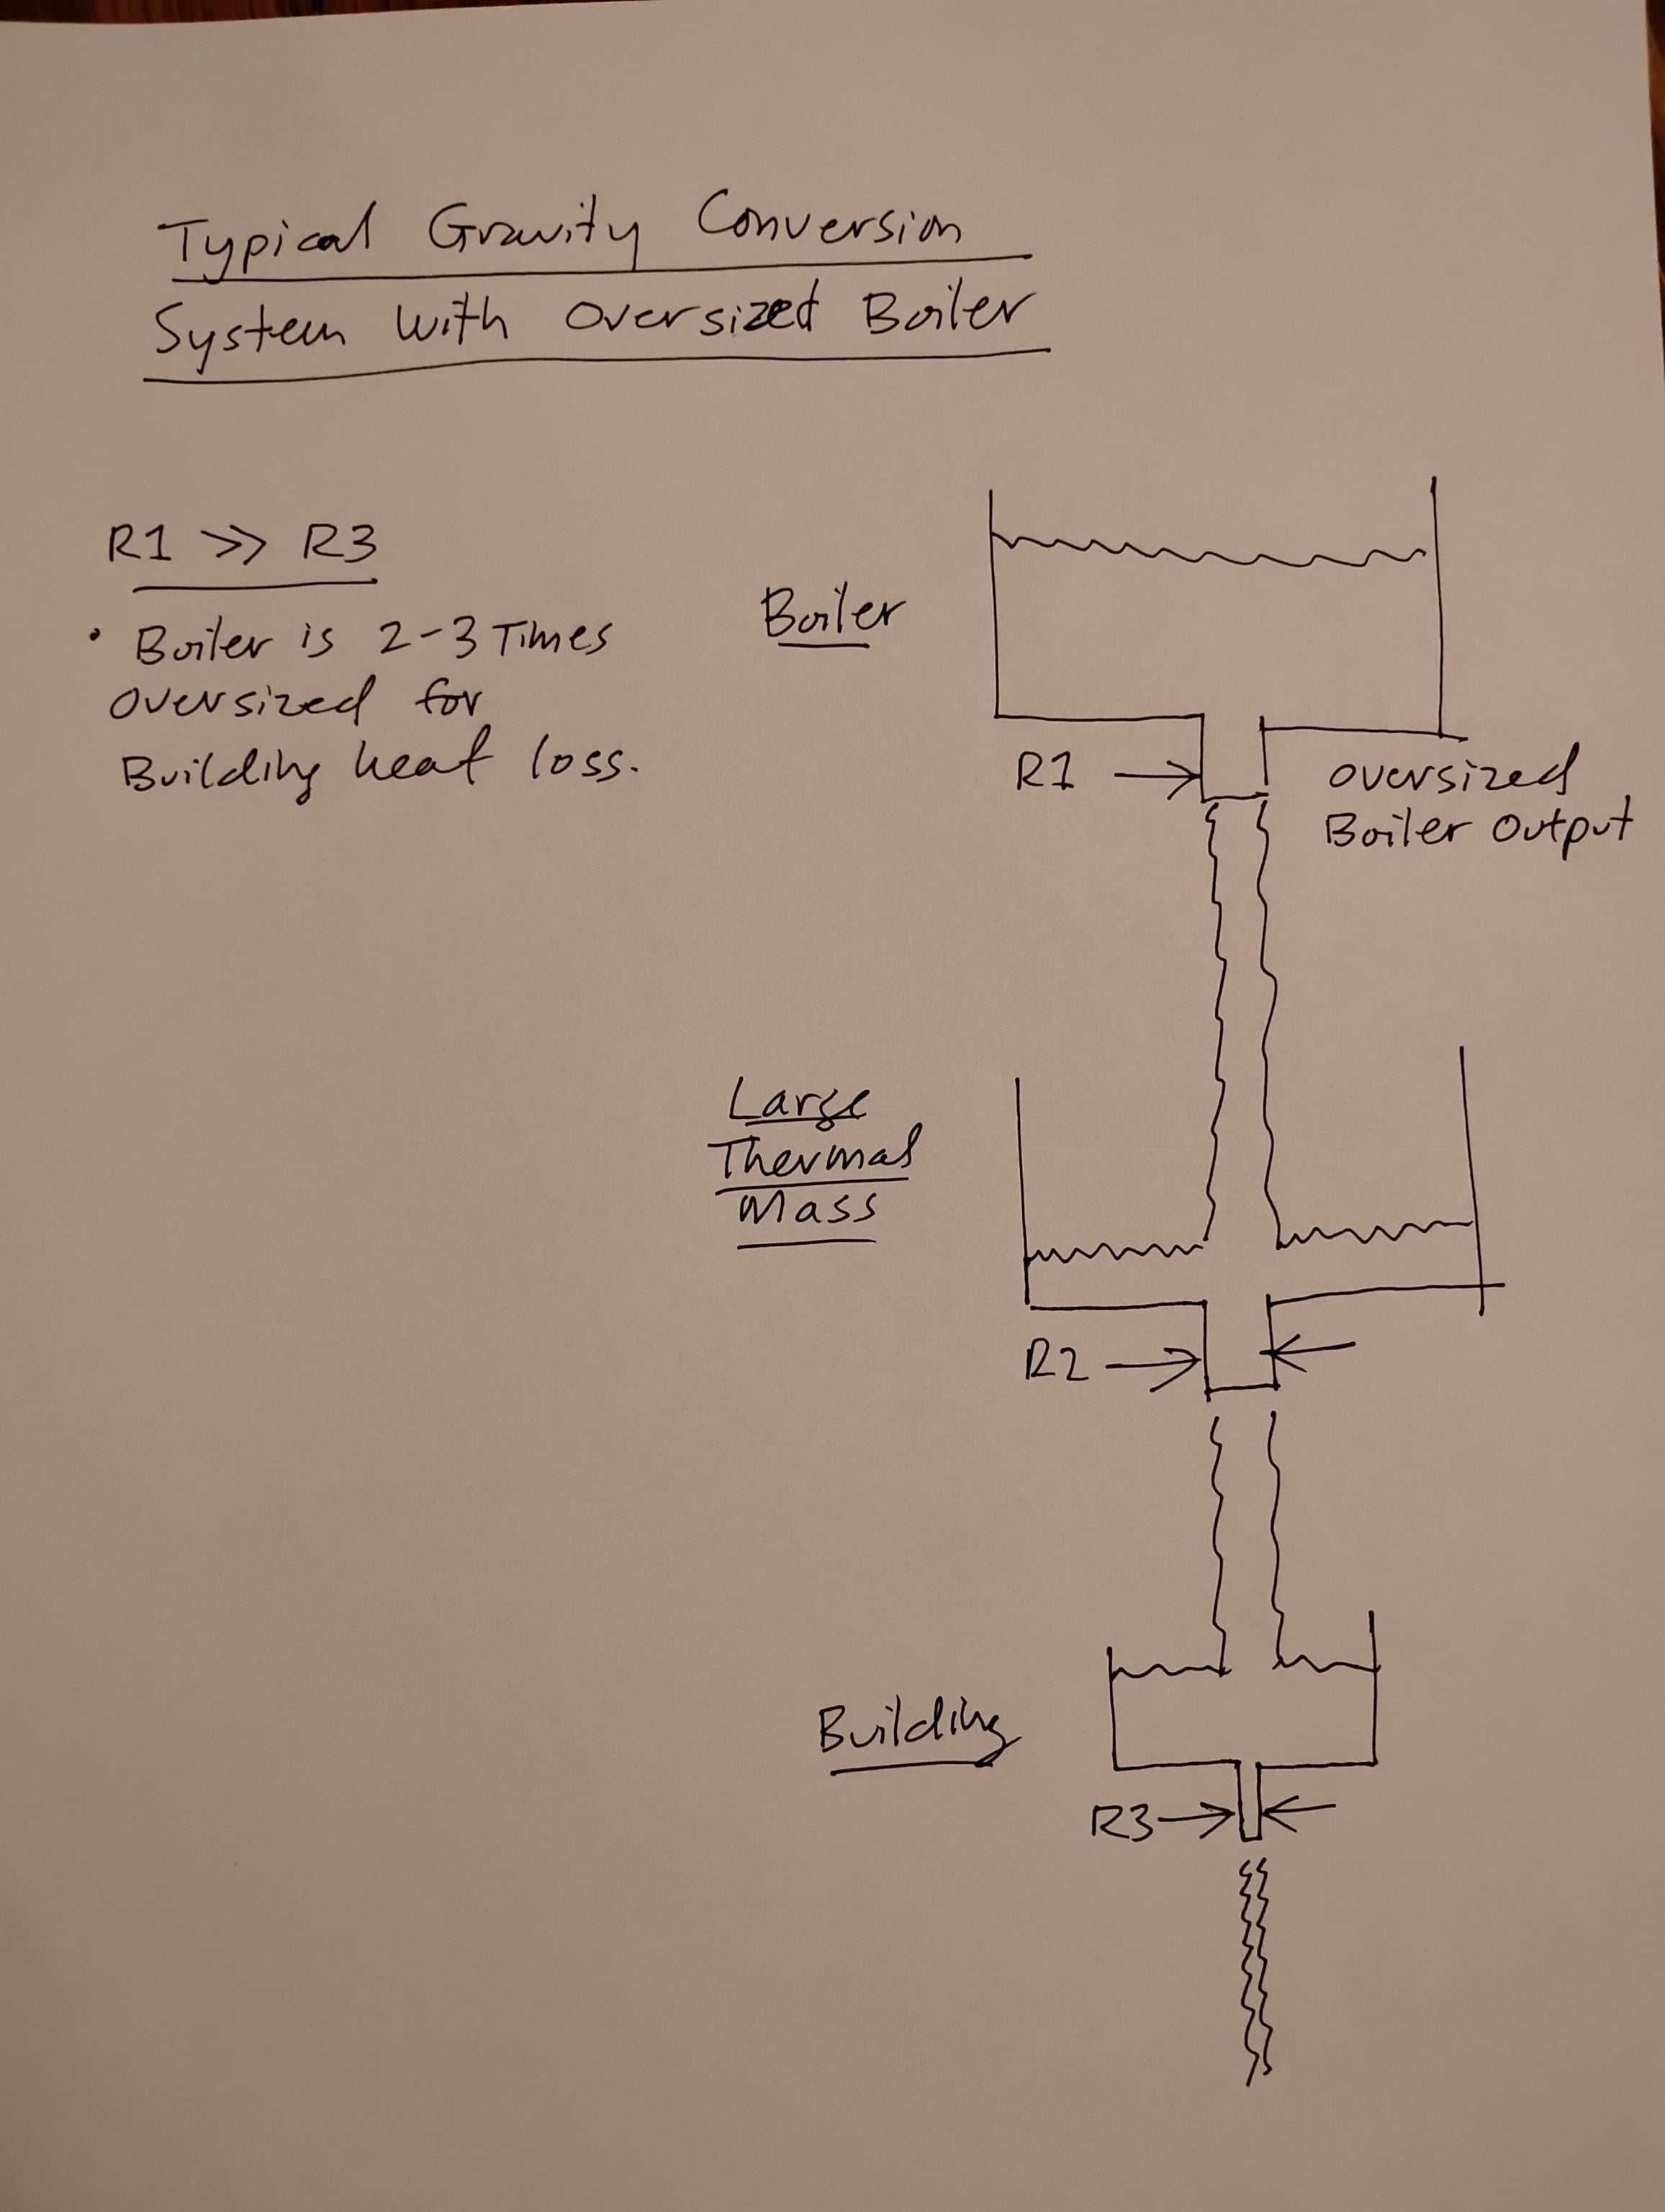 Typical Gravity Conversion
System with Oversized Boiler
R1 >> R3
• Boiler is 2-3 Times
oversized for
Building heat loss.
Boiler
R1
oversized
Boiler Output
Large
Thermal
Mass
R2
Building
R3